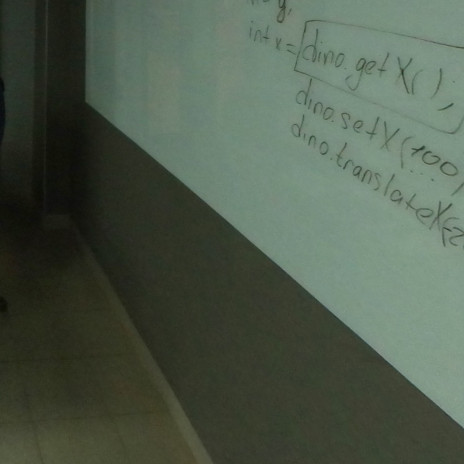 y;
int x = dino.getX();
dino.setX(100)
dino.translateX(-2